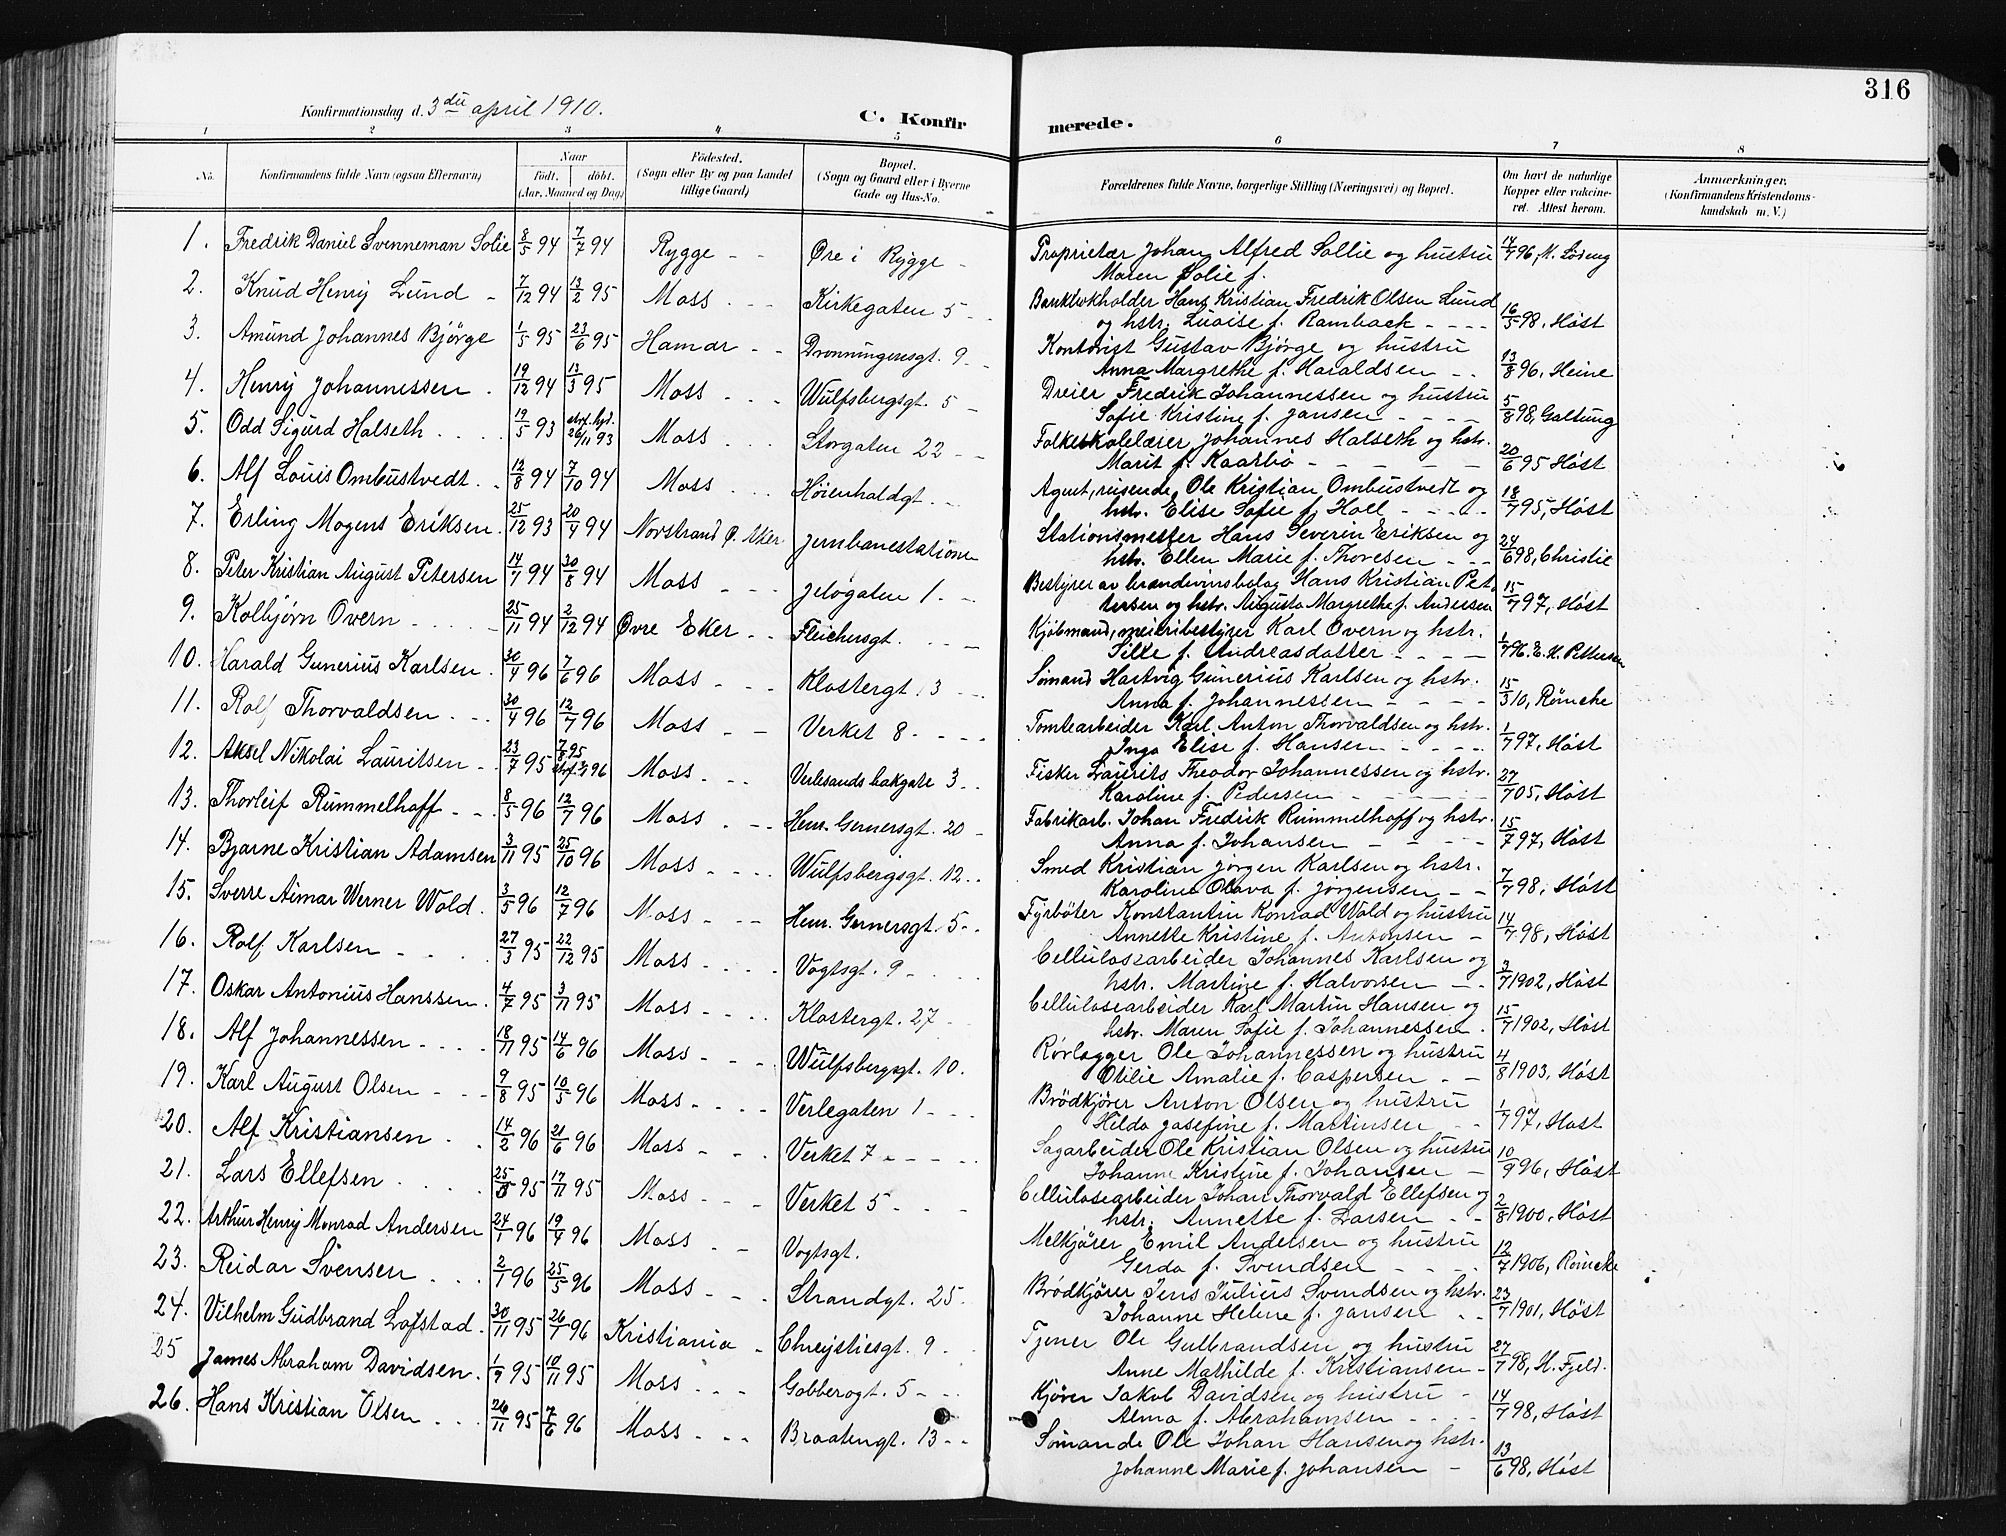 316
Konfirmationsdag d. 3die april 1910.
C. Konfirmerede.
1 2 3 4 5 6 7 8
No. | Konfirmandens fulde Navn (ogsaa Efternavn) | Naar født. døbt. (Aar, Maaned og Dag) | Fødested. (Sogn eller By og paa Landet tillige Gaard) | Bopæl. (Sogn og Gaard eller i Byerne Gade og Hus-No. | Forældrenes fulde Navne, borgerlige Stilling (Næringsvei) og Bopæl. | Om havt de naturlige Kopper eller vakcineret. Attest herom. | Anmærkninger. (Konfirmandens Kristendomskundskab m. V.)
1. Fredrik Daniel Svenneman Solie 8/5 94 7/7 94 Rygge Øre i Rygge Proprietær Johan Alfred Sollie og hustru 14/9 96, M. Lødeng
Maren Solie f.
2. Knud Henry Lund 7/12 94 13/2 95 Moss Kirkegaten 5 Bankbokholder Hans Kristian Fredrik Olsen Lund
og hstr. Lovise f. Rambach 16/5 98, Høst
3. Amund Johannes Bjørge 1/5 95 23/6 95 Hamar Dronningensgt. 9 Kontorist Gustav Bjørge og hustru
Anna Margrethe f. Haraldsen 13/8 96, Heine
4. Henry Johannessen 19/12 94 13/3 95 Moss Wulfsbergsgt. 5 Dreier Fredrik Johannessen og hustru
Sofie Kristine f. Jansen 5/8 98, Galtung
5. Odd Sigurd Halseth 19/5 93 26/11 93 Moss Storgaten 22 Folkeskolelærer Johannes Halseth og hstr.
Marit f. Kaarbø 20/6 95 Høst
6. Alf Louis Ombustvedt 12/8 94 7/10 94 Moss Høienhaldgt. Agent, reisende Ole Kristian Ombustvedt og
hstr. Elise Sofie f. Holl 18/7 95, Høst
7. Erling Mogens Eriksen 25/12 93 20/4 94 Norstrand Ø. Aker Jernbanestationen Stationsmester Hans Severin Eriksen og
hstr. Ellen Marie f. Thoresen 24/6 98, Christie
8. Peter Kristian August Petersen 14/7 94 30/8 94 Moss Jeløgaten 1 Bestyrer av brændevinsbolag Hans Kristian Pet-
tersen og hstr. Augusta Margrethe f. Andersen 15/7 97, Høst
9. Kolbjørn Overn 25/11 94 2/12 94 Øvre Eker Fleichersgt. Kjøbmand, meieribestyrer Karl Overn og hstr.
Silke f. Andreasdatter 1/7 96. E. K. Pettersen
10. Harald Gunerius Karlsen 30/4 96 7/6 96 Moss Klostergt. 3 Sømand Hartvig Gunerius Karlsen og hstr.
Anna f. Johannessen 15/3 10, Rømcke
11. Rolf Thorvaldsen 30/4 96 12/7 96 Moss Verket 8 Tomtearbeider Karl Anton Thorvaldsen og hstr.
Inga Elise f. Hansen 1/7 97, Høst
12. Aksel Nikolai Lauritsen 23/7 95 7/8 95 Moss Verlesands bakgate 3 Fisker Laurits Theodor Johannessen og hstr.
Karoline f. Pedersen 27/7 05, Høst
13. Thorleif Rummelhoff 8/5 96 12/7 96 Moss Henr. Gernersgt. 20 Fabrikarb. Johan Fredrik Rummelhoff og hstr.
Anna f. Johansen 15/7 97, Høst
14. Bjarne Kristian Adamsen 3/11 95 25/10 96 Moss Wulfsbergsgt. 12 Smed Kristian Jørgen Karlsen og hstr.
Karoline Olava f. Jørgensen 7/7 98, Høst
15. Sverre Aimar Werner Wold 3/5 96 12/7 96 Moss Henr. Gernersgt. 5 Fyrbøter Konstantin Konrad Wold og hustru
Annette Kristine f. Antonsen 14/7 98, Høst
16. Rolf Karlsen 27/3 95 22/12 95 Moss Vogtsgt. 9 Cellulosearbeider Johannes Karlsen og
hstr. Martine f. Halvorsen 3/7 1902, Høst
17. Oskar Antonius Hanssen 4/7 95 3/11 95 Moss Klostergt. 27 Cellulosearbeider Karl Martin Hansen og
hstr. Maren Sofie f. Johannessen 15/7 1902, Høst
18. Alf Johannessen 18/11 95 14/6 96 Moss Wulfsbergsgt. 10. Rørlægger Ole Johannessen og hustru
Otilie Amalie f. Caspersen 4/8 1903, Høst
19. Karl August Olsen 9/8 95 10/5 96 Moss Verlegaten 1 Brødkjører Anton Olsen og hustru
Hilda Josefine f. Martinsen 1/7 97, Høst
20. Alf Kristiansen 14/2 96 21/6 96 Moss Verket 7 Sagarbeider Ole Kristian Olsen og hustru
Johanne Kristine f. Johansen 10/9 96, Høst
21. Lars Ellefsen 25/8 95 17/11 95 Moss Verket 5 Cellulosearbeider Johan Thorvald Ellefsen og
hstr. Annette f. Larsen 2/8 1900, Høst
22. Arthur Henry Monrad Andersen 24/1 96 19/4 96 Moss Vogtsgt. Melkjører Emil Andersen og hustru
Gerda f. Svendsen 12/7 1906, Rømcke
23. Reidar Svensen 2/1 96 25/5 96 Moss Strandgt. 25. Brødkjører Jens Julius Svendsen og hstr.
Johanne Helene f. Jansen 23/7 1901, Høst
24. Vilhelm Gudbrand Lofstad 30/11 95 26/1 96 Kristiania Chrystiesgt. 9 Tjener Ole Gulbrandsen og hustru
Anne Mathilde f. Kristiansen 27/7 98, H. Fjeld.
25 James Abraham Davidsen 1/9 95 10/11 95 Moss Gobberogt. 5 Kjører Jakob Davidsen og hustru
Alma f. Abrahamsen 14/7 98, Høst
26. Hans Kristian Olsen 26/11 95 7/6 96 Moss Braatengt. 13 Sømand Ole Johan Hansen og hstr.
Johanne Marie f. Johansen 13/6 98, Høst